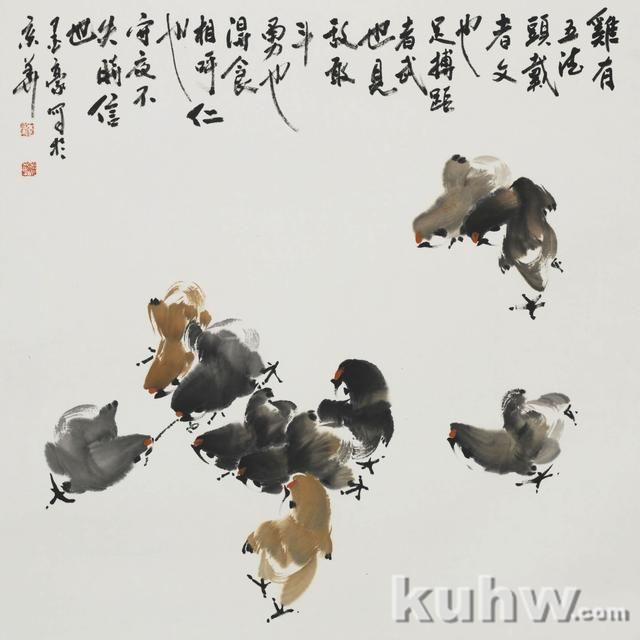 雞有
五德
頭戴
者文
也
足搏距
者武
也見
敌敢
斗
勇也
得食
相呼仁
也
守夜不
失時信
也
墨豪写於
京華
kuhw.com